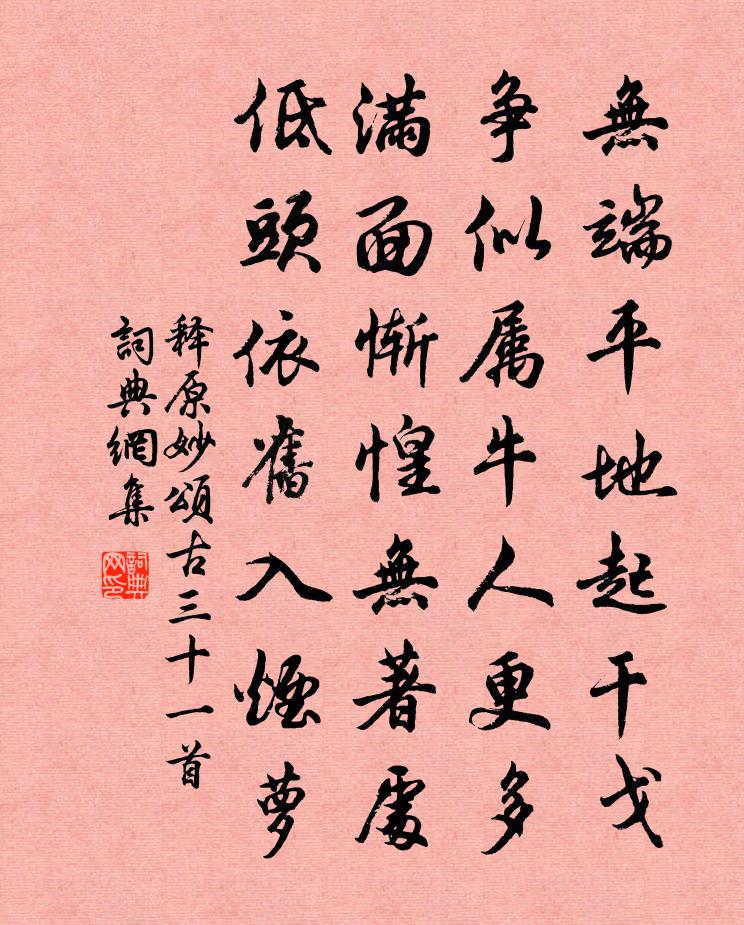 無端平地起干戈
争似属牛人更多
滿面慚惶無著處
低頭依舊入煙蘿
释原妙頌古三十一首
詞典網集
詞典网印